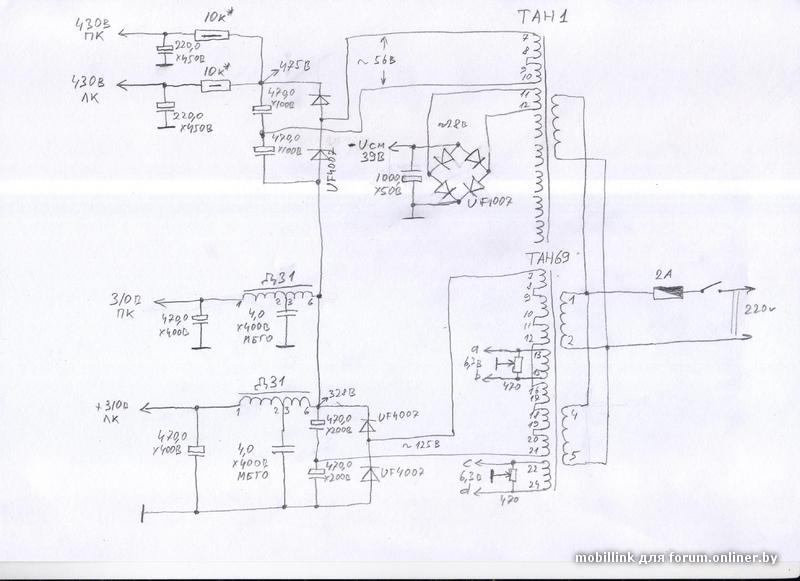 ТАН1
430В
ПК
10к*
220,0
х450В
430В
ЛК
10к*
220,0
х450В
475В
~ 56В
470,0
х100В
470,0
х100В
UF4007
7
8
9
10
11
12
~28В
-Uсм
39В
1000
х50В
UF4007
ТАН69
310В
ПК
Д31
1
2
3
6
470,0
х400В
4,0
х400В
МБГО
2А
220v
1
2
4
5
7
8
9
10
11
12
13
a
6,3В
b
470
+310В
ЛК
Д31
1
2
3
6
328В
470,0
х400В
4,0
х400В
МБГО
470,0
х200В
470,0
х200В
UF4007
UF4007
~ 125В
18
19
20
21
22
24
c
6,3В
d
470
mobillink для forum.onliner.by